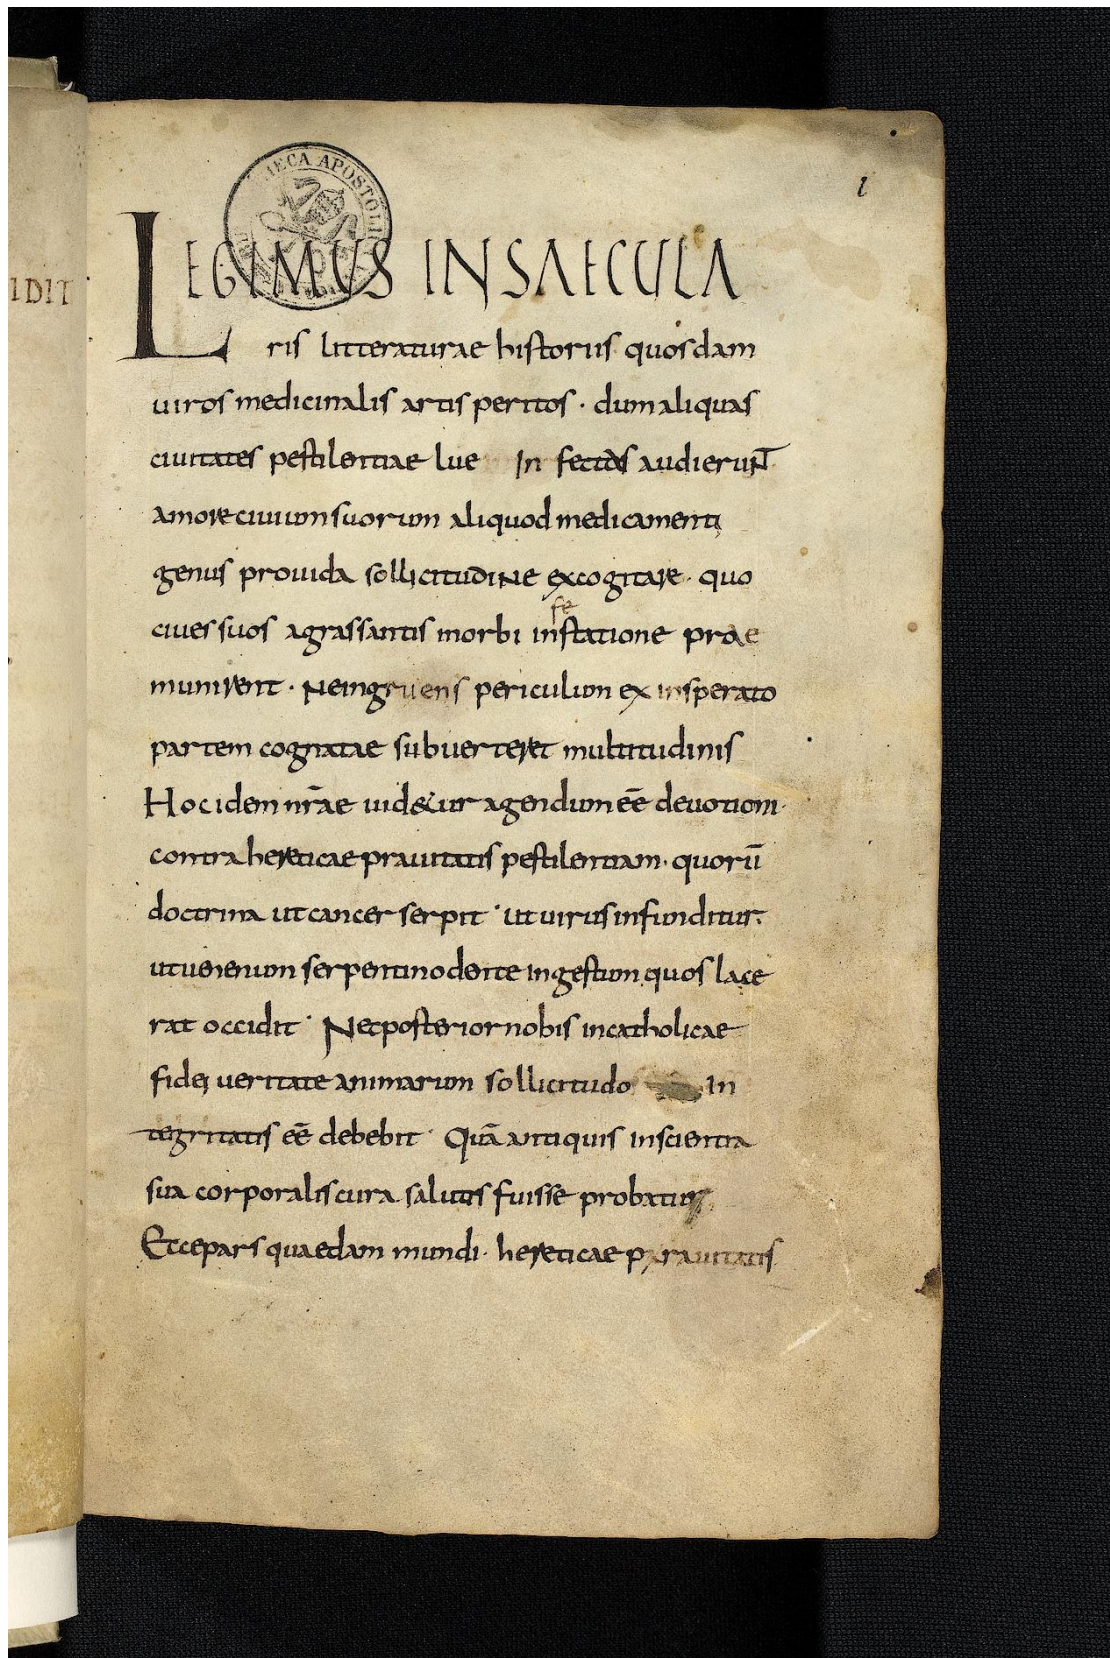 IDIT
IECA APOSTOLI
1
LEGIMUS IN SAECULA
ris litteraturae historiis quosdam
uiros medicinalis artis peritos · dum aliquas
ciuitates pestilentiae lue In fectas audierunt
amore ciuium suorum aliquod medicamenti
genus prouida sollicitudine excogitare · quo
fe
ciues suos agrassantis morbi instatione prae
munirent · Neingruens periculum ex insperato
partem cognatae subuerteret multitudinis
Hocidem nr̄ae uidetur agendum eē deuotioni·
contra hereticae prauitatis pestilentiam · quorū
doctrina ut cancer serpit · ut uirus infunditur·
ut uenenum serpentino dente ingestum quos lace
rat occidit · Nec posterior nobis in catholicae
fidei ueritate animarum sollicitudo In
tegritatis eē debebit · Quā antiquis inscientia
sua corporalis cura salutis fuisse probatur
Et cepars quaedam mundi · hereticae prauitatis